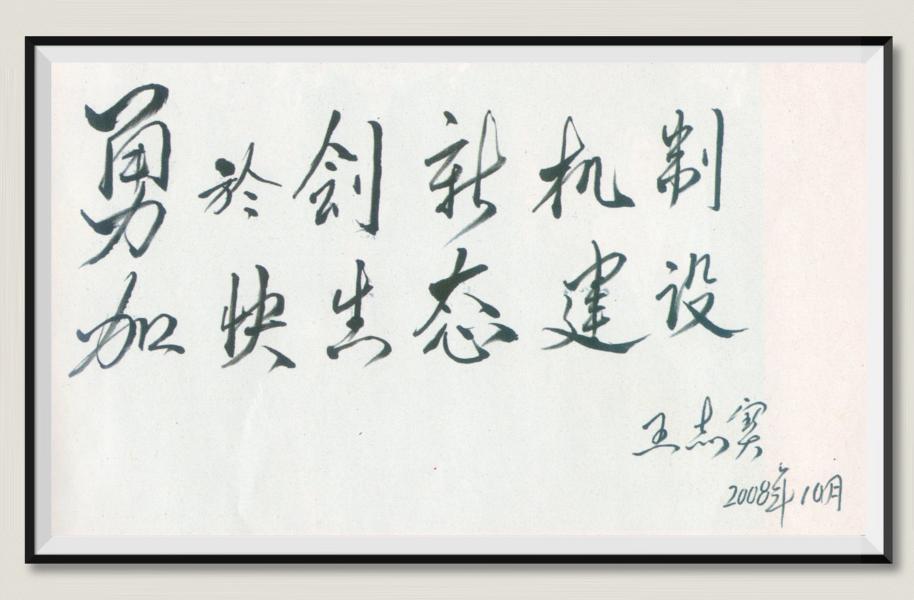 勇於创新机制
加快生态建设
王志宝
2008年10月